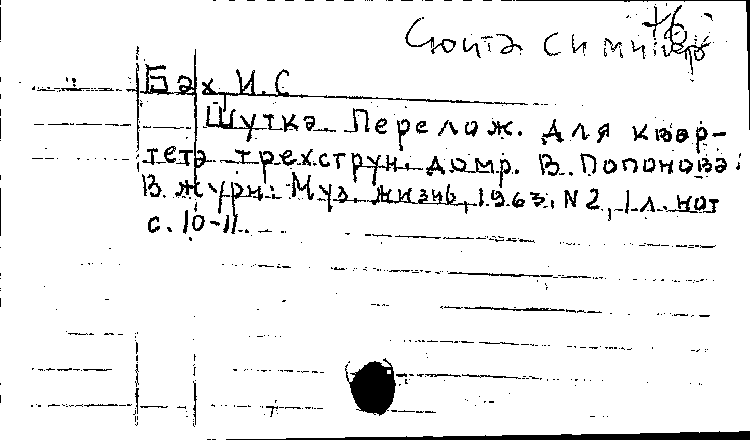 Сюита си мин
Бах И.С
Шутка. Перелож. для квар-
тета трехструн. домр. В. Попонова.
В журн: Муз. жизнь, 1963. N 2, 1 л. нот
с. 10-11.